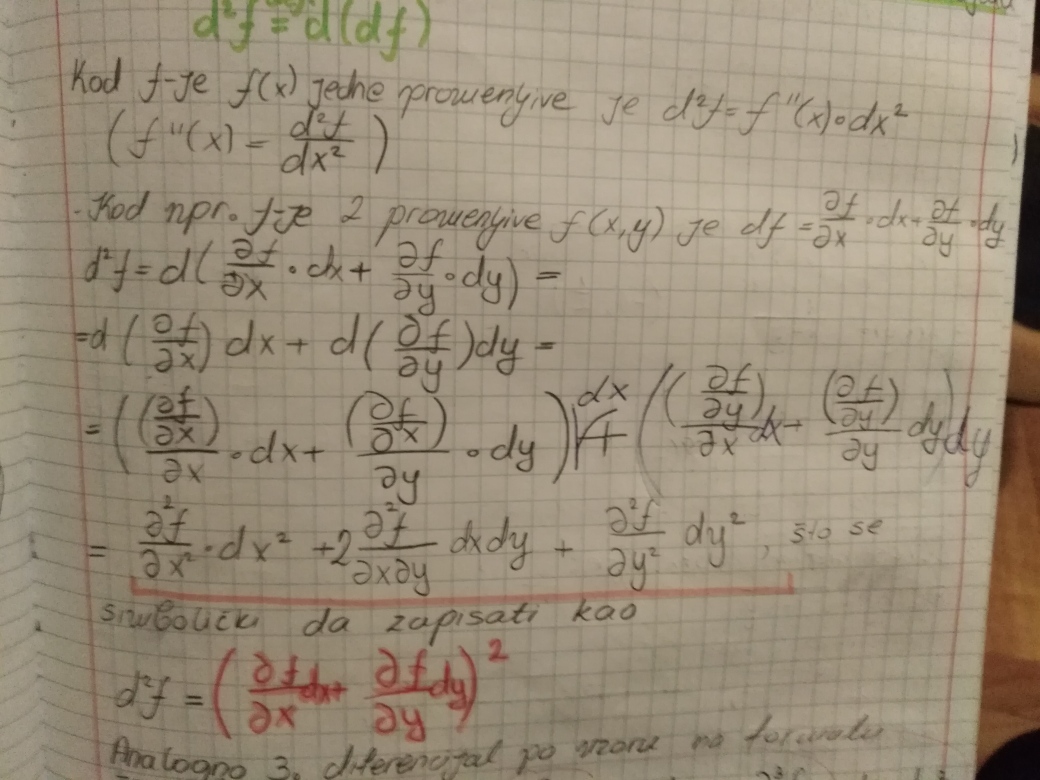 d²f = d(df)
Kod f-je f(x) jedne promenljive je d²f = f''(x)·dx²
(f''(x) = d²f/dx²)
- Kod npr. f-je 2 promenljive f(x,y) je df = ∂f/∂x · dx + ∂f/∂y · dy
d²f = d(∂f/∂x · dx + ∂f/∂y · dy) =
= d(∂f/∂x) dx + d(∂f/∂y) dy =
= ((∂f/∂x)/∂x · dx + (∂f/∂x)/∂y · dy) dx + ((∂f/∂y)/∂x dx + (∂f/∂y)/∂y dy) dy
= ∂²f/∂x² · dx² + 2 ∂²f/∂x∂y dxdy + ∂²f/∂y² dy², što se
simbolički da zapisati kao
d²f = (∂f/∂x dx + ∂f/∂y dy)²
Analogno 3. diferencijal po uzoru na formulu